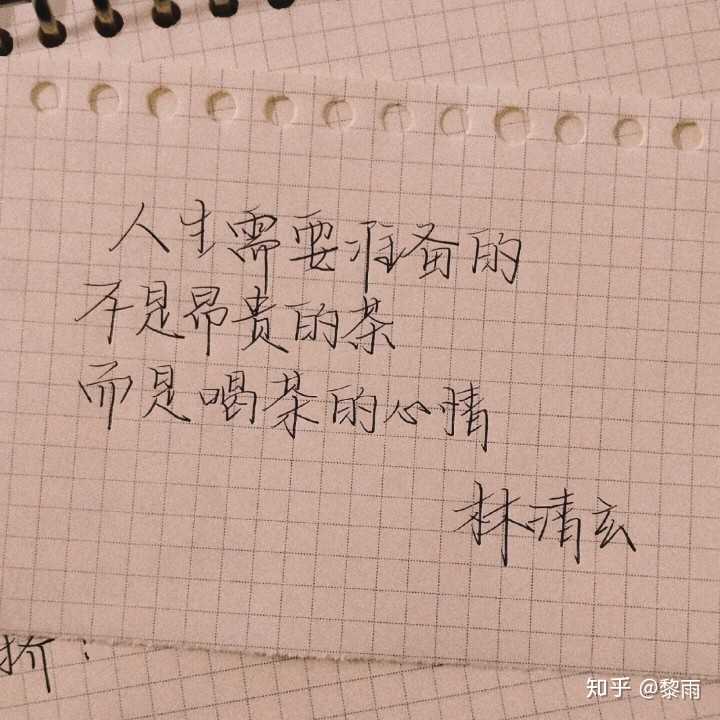 人生需要准备的
不是昂贵的茶
而是喝茶的心情
林清玄
知乎 @黎雨